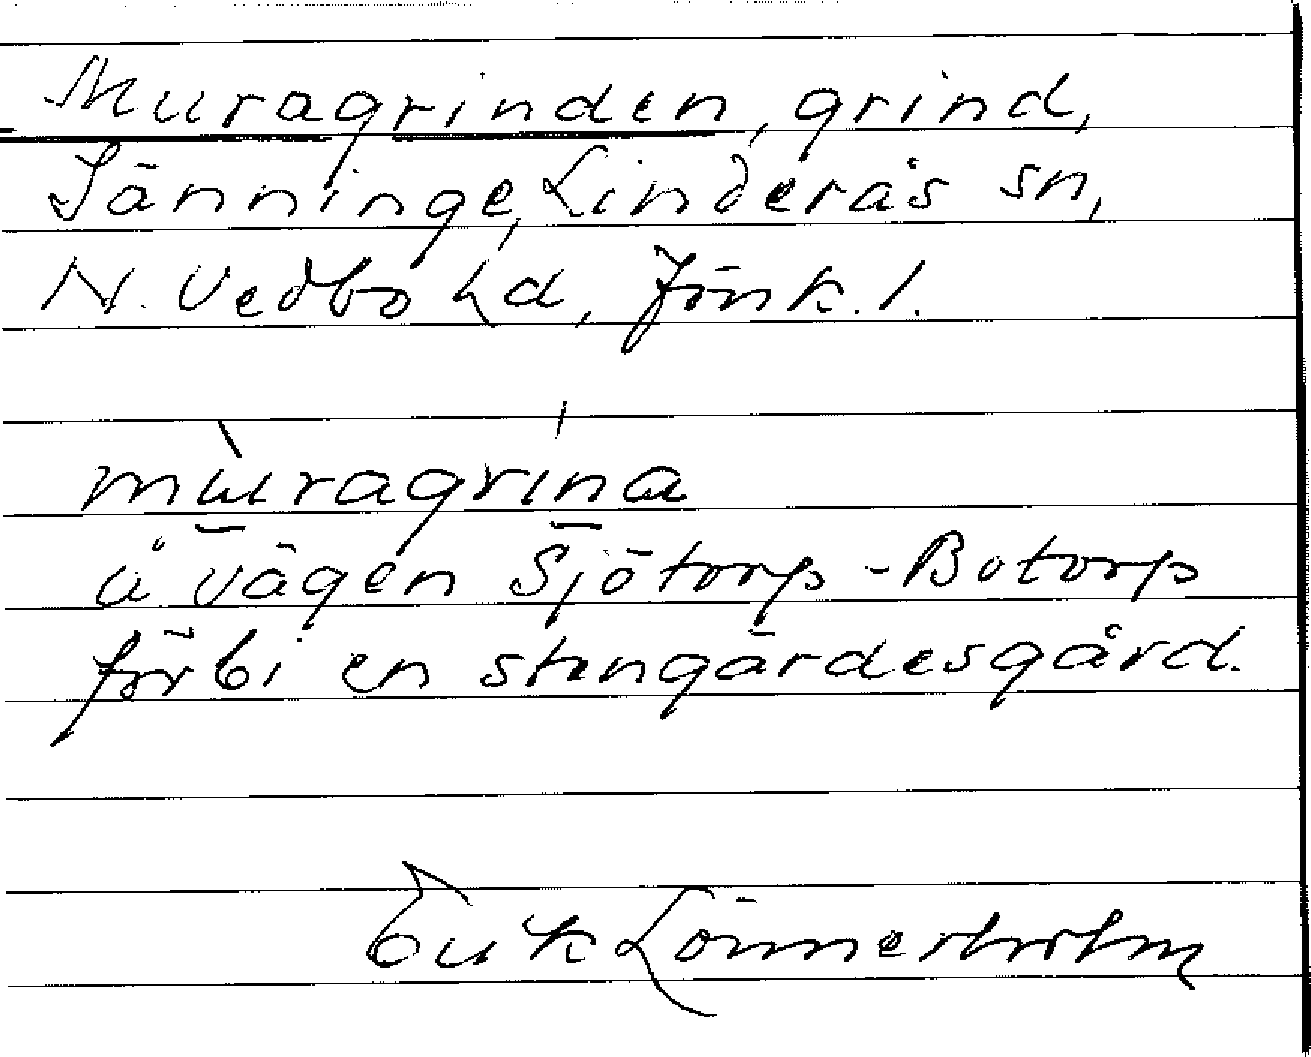 Muragrinden, grind,
Sänninge, Linderås sn,
N. Vedbo hd, Jönk. l.
mùragrína
å vägen Sjötorp - Botorp
förbi en stengärdesgård.
Erik Lönnerholm